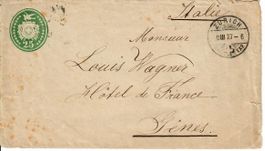 Italie
25
ZÜRICH
Monsieur
Louis Wagner
Hôtel de France
Gênes.